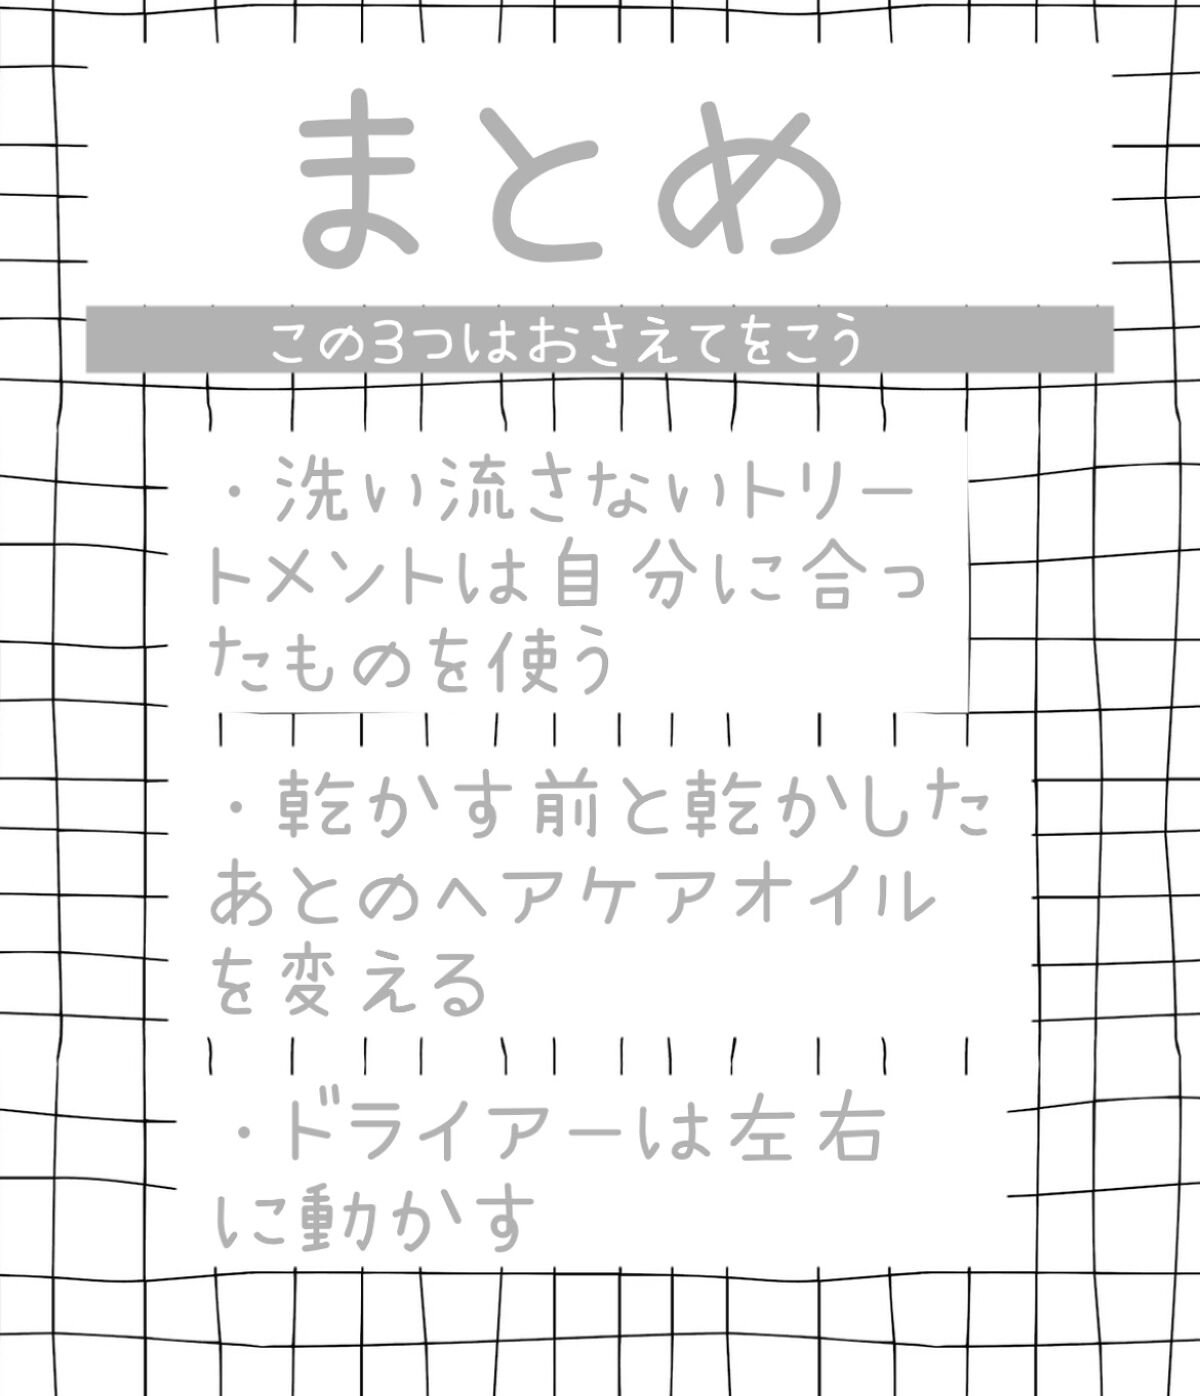 まとめ
この3つはおさえてをこう
・洗い流さないトリー
トメントは自分に合っ
たものを使う
・乾かす前と乾かした
あとのヘアケアオイル
を変える
・ドライアーは左右
に動かす